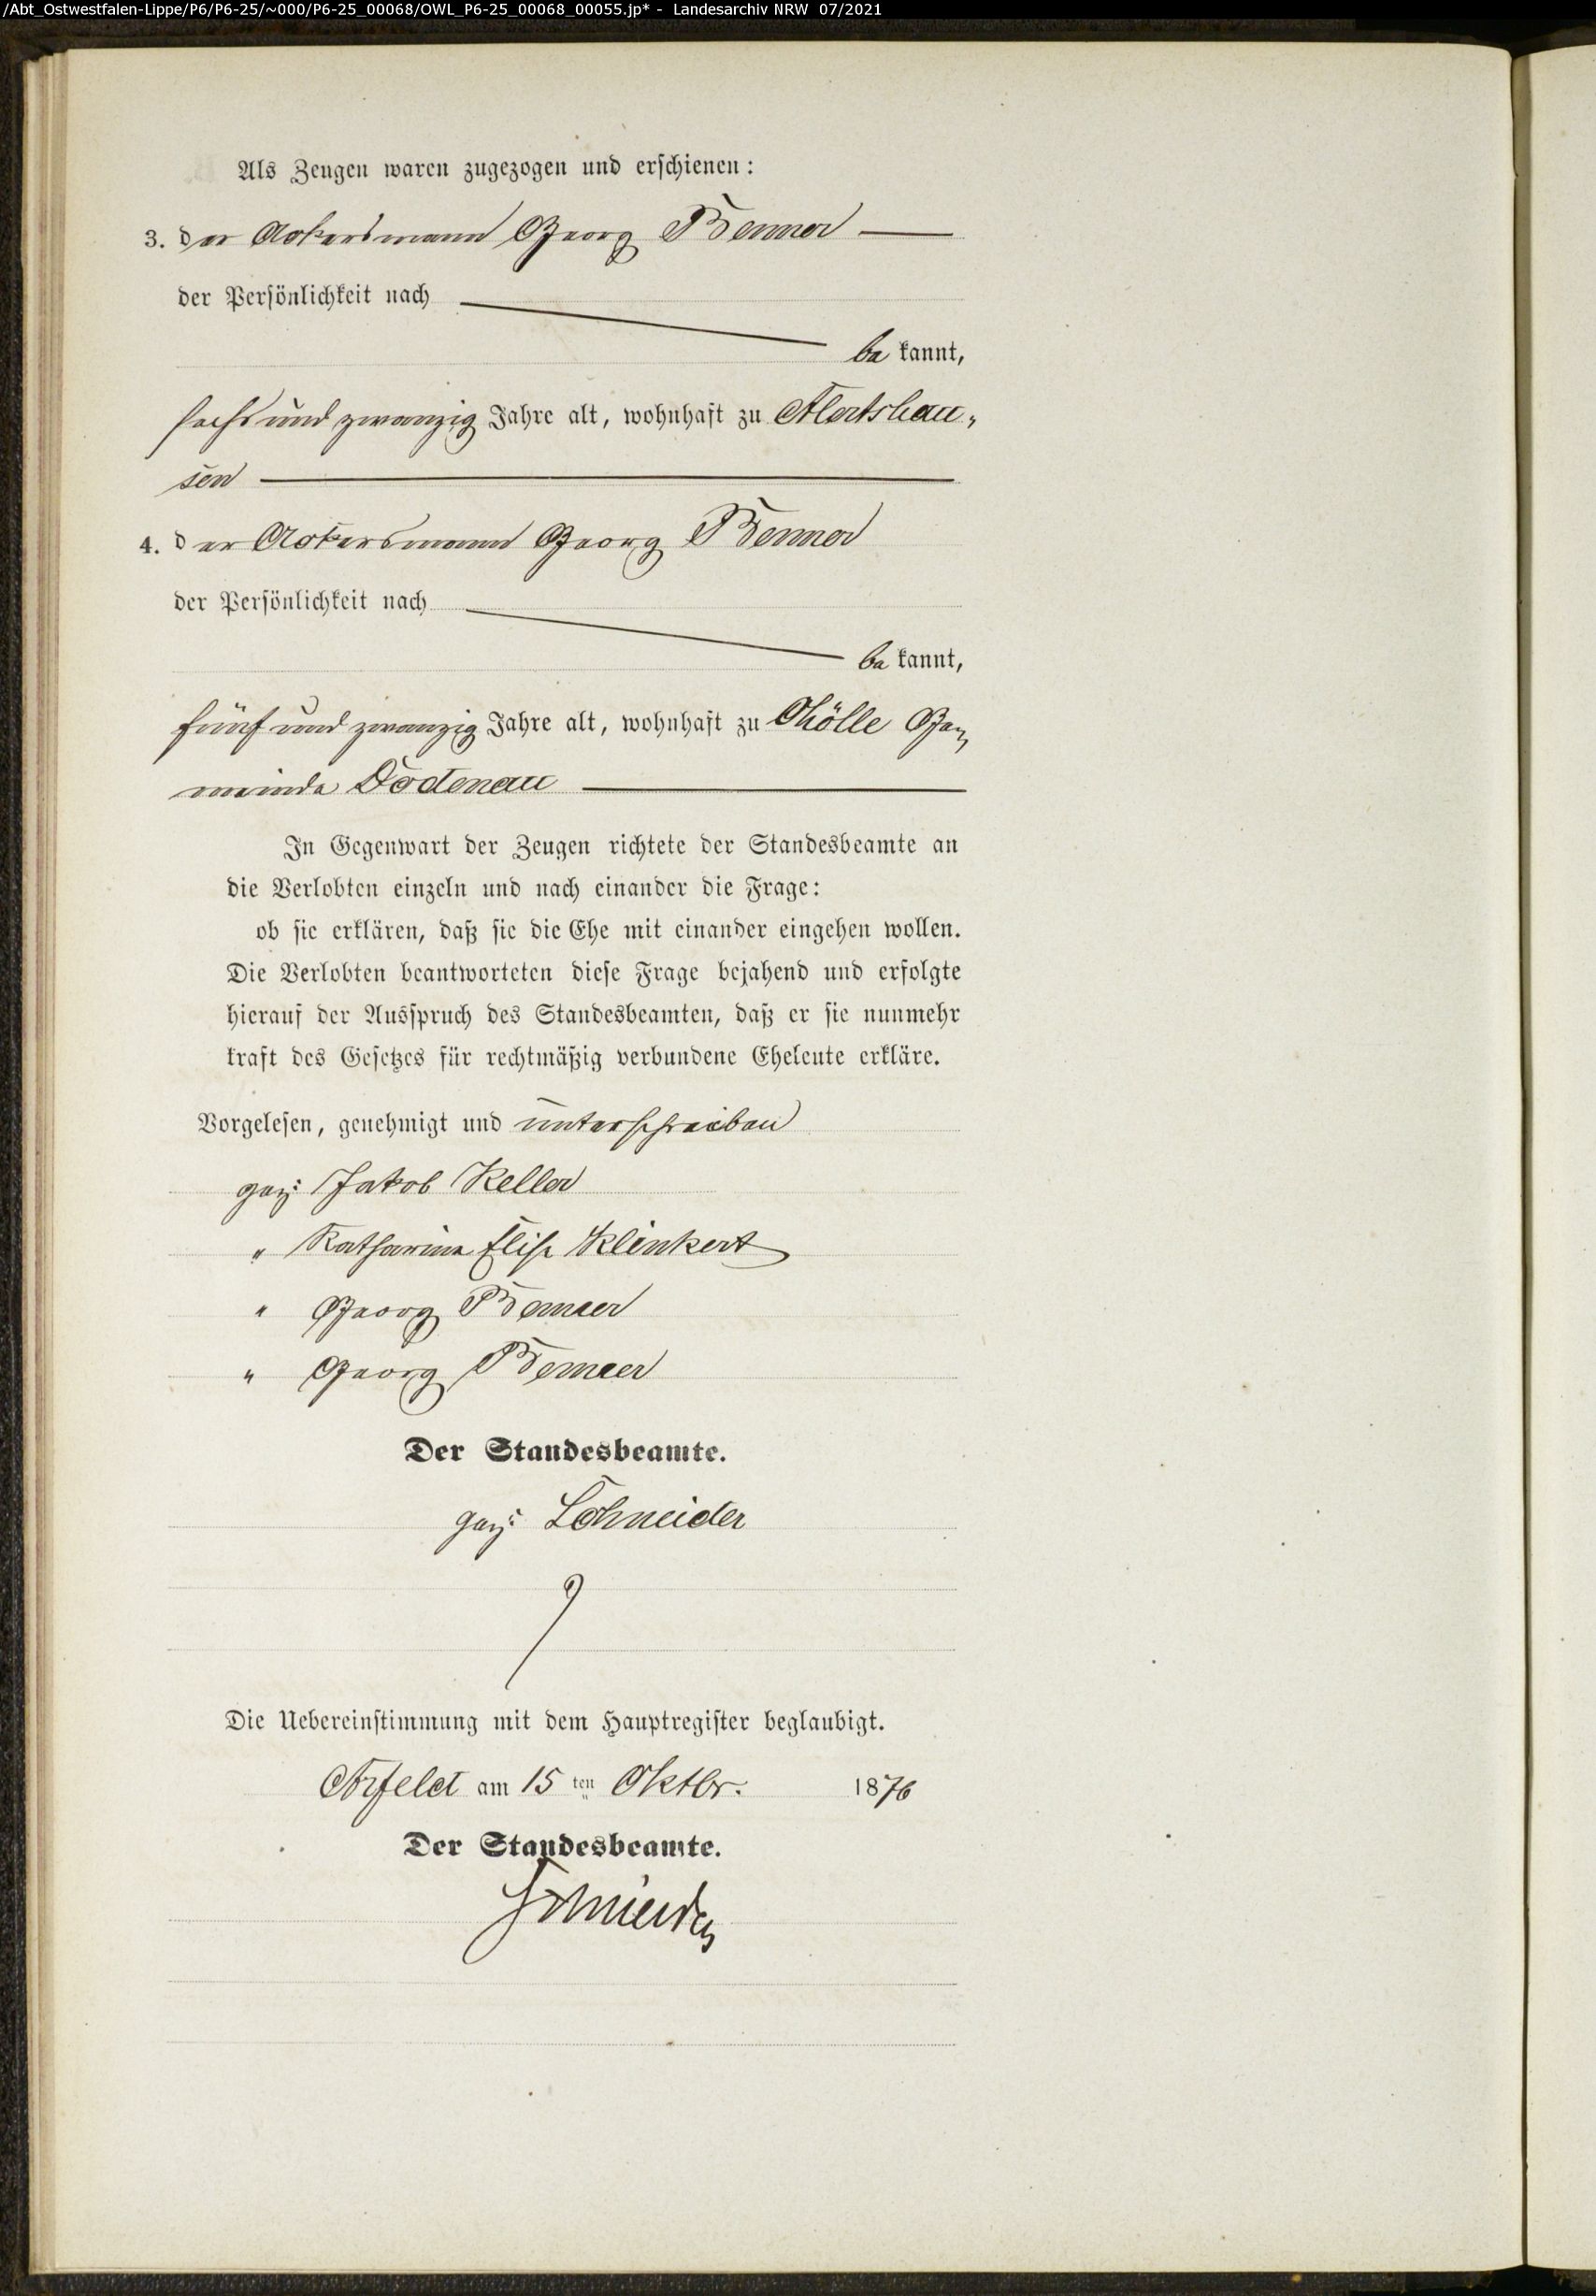 /Abt_Ostwestfalen-Lippe/P6/P6-25/~000/P6-25_00068/OWL_P6-25_00068_00055.jp* - Landesarchiv NRW 07/2021
Als Zeugen waren zugezogen und erschienen:
3. der Ackersmann Georg Benner
der Persönlichkeit nach
be kannt,
sechs und zwanzig Jahre alt, wohnhaft zu Alertshau-
sen
4. der Ackersmann Georg Benner
der Persönlichkeit nach
be kannt,
fünf und zwanzig Jahre alt, wohnhaft zu Ge-
meinde Dodenau
In Gegenwart der Zeugen richtete der Standesbeamte an
die Verlobten einzeln und nach einander die Frage:
ob sie erklären, daß sie die Ehe mit einander eingehen wollen.
Die Verlobten beantworteten diese Frage bejahend und erfolgte
hierauf der Ausspruch des Standesbeamten, daß er sie nunmehr
kraft des Gesetzes für rechtmäßig verbundene Eheleute erkläre.
Vorgelesen, genehmigt und unterschrieben
gez: Jakob Keller
" Katharina Elise Klinkert
" Georg Benner
" Georg Benner
Der Standesbeamte.
gez: Schneider
Die Uebereinstimmung mit dem Hauptregister beglaubigt.
Arfeld am 15 ten Oktbr. 1876
Der Standesbeamte.
Schneider